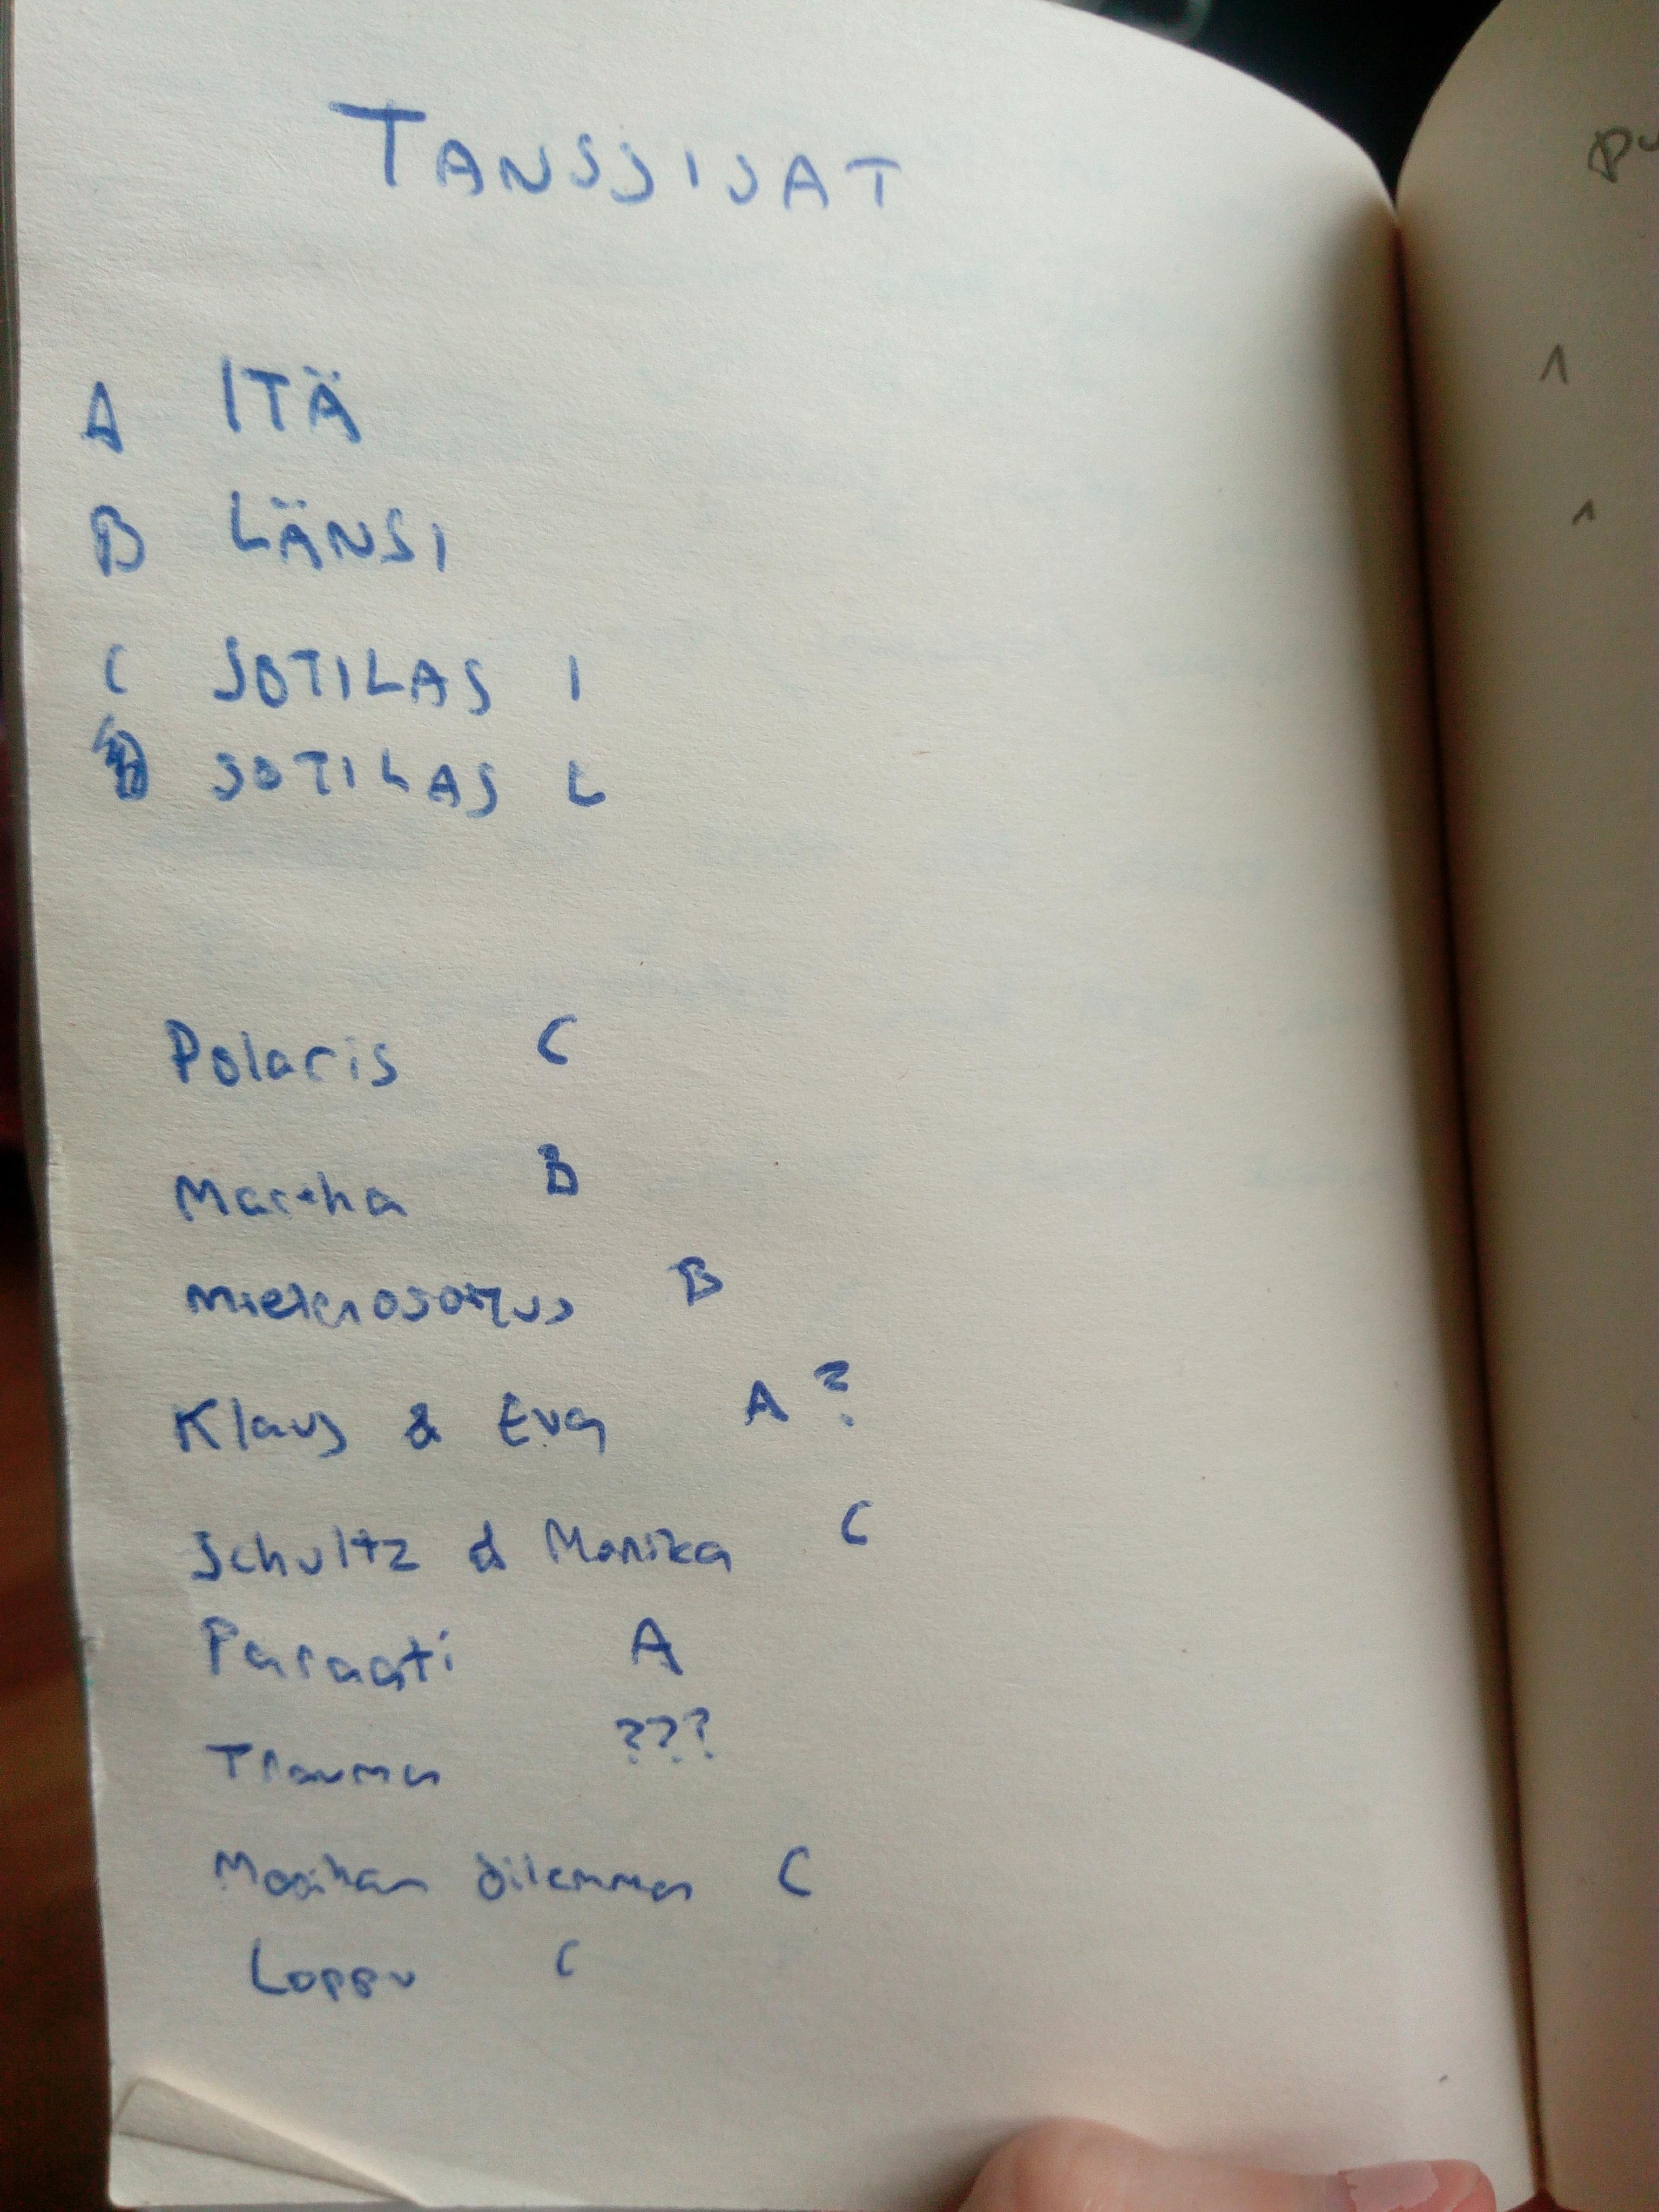 TANSSIJAT
A ITÄ
B LÄNSI
C SOTILAS I
SOTILAS L
Polaris C
Martha B
Mielenosoitus B
Klaus & Eva A ?
Schultz & Monika C
Paraati A
Trauma ???
Moosihan dilemma C
Loppu C